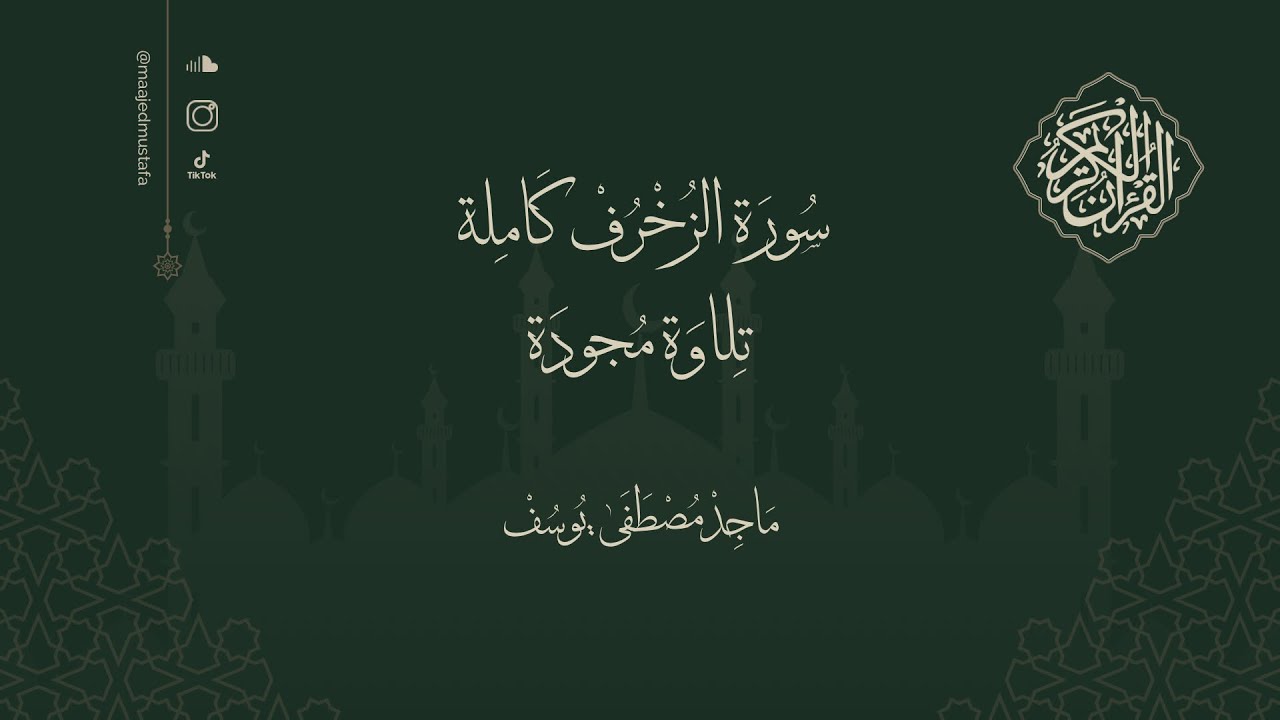 سُورَة الزُخْرُفْ كَامِلة
تِلاوَة مُجودَة
مَاجِدْ مُصْطَفَىٰ يُوسُفْ
القرآن الكريم
@maajedmustafa
TikTok